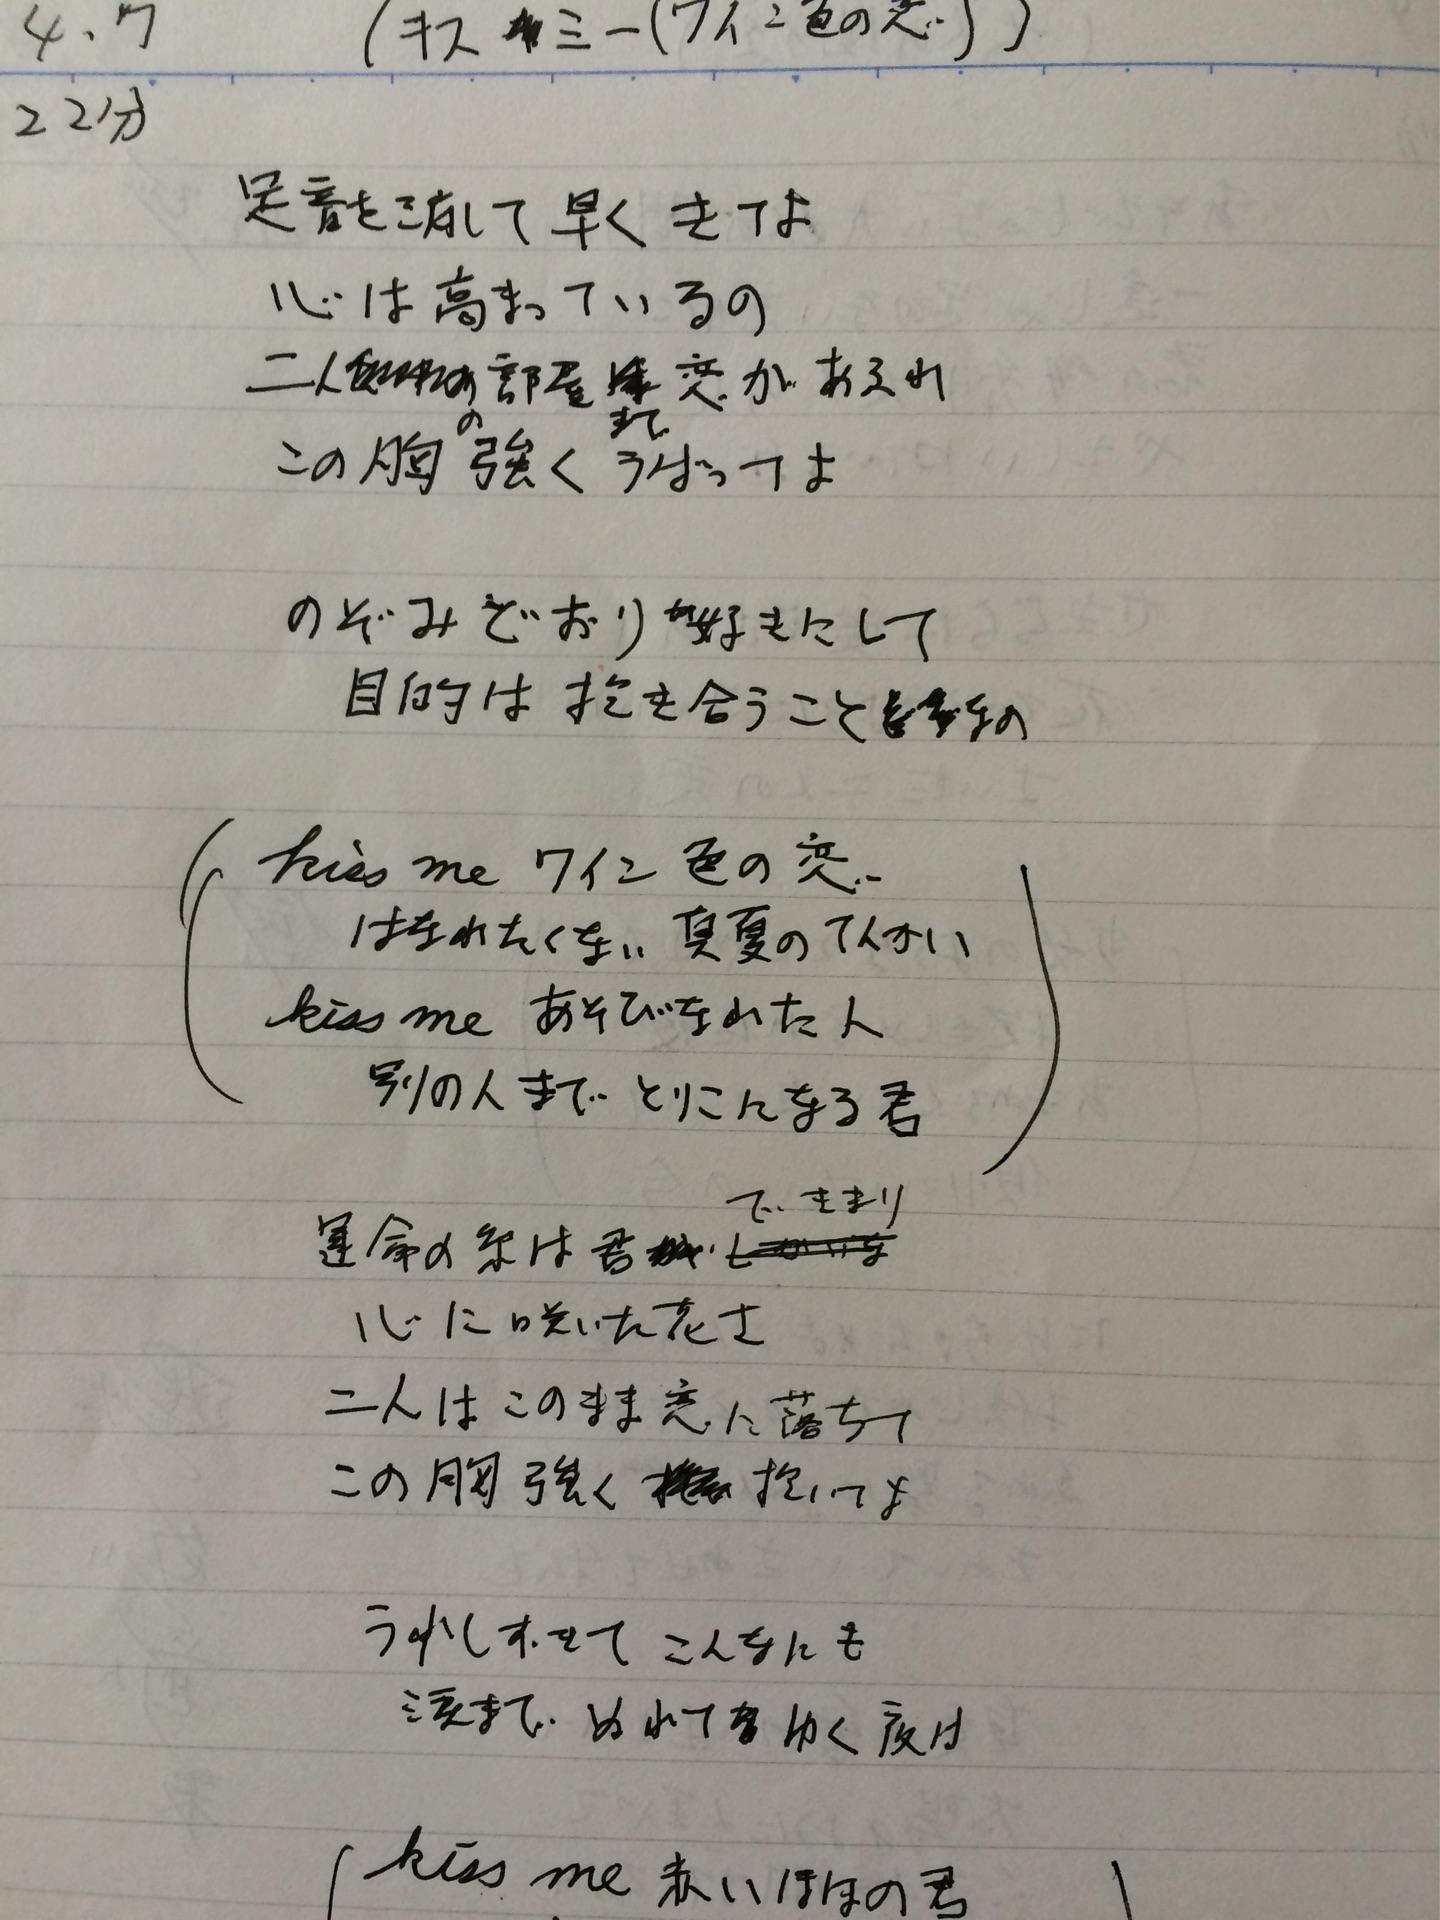 4.7 (キスミー(ワイン色の恋))
22分
足音を消して早くきてよ
心は高まっているの
二人の部屋まで恋があふれ
この胸強くうばってよ
のぞみどおり好きにして
目的は抱き合うことなの
kiss me ワイン色の恋
はなれたくない真夏のてんかい
kiss me あそびなれた人
別の人までとりこになる君
運命の糸は君できまり
心に咲いた花さ
二人はこのまま恋に落ちて
この胸強く抱いてよ
うれしすぎて こんなにも
涙まで ぬれてゆく夜は
kiss me 赤いほほの君